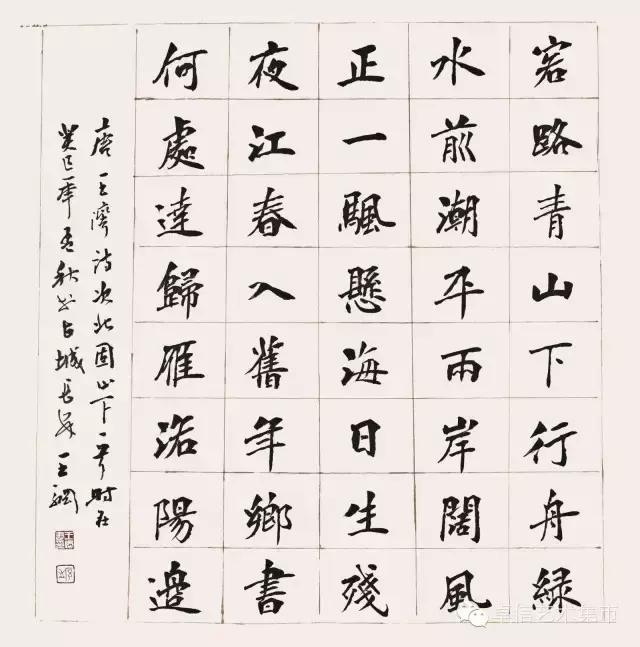 客路青山下行舟綠
水前潮平兩岸闊風
正一颿懸海日生殘
夜江春入舊年鄉書
何處達歸雁洛陽邊
唐王灣詩次北固山下一首時在
癸巳年孟秋於古城長安王
卓信艺术集市